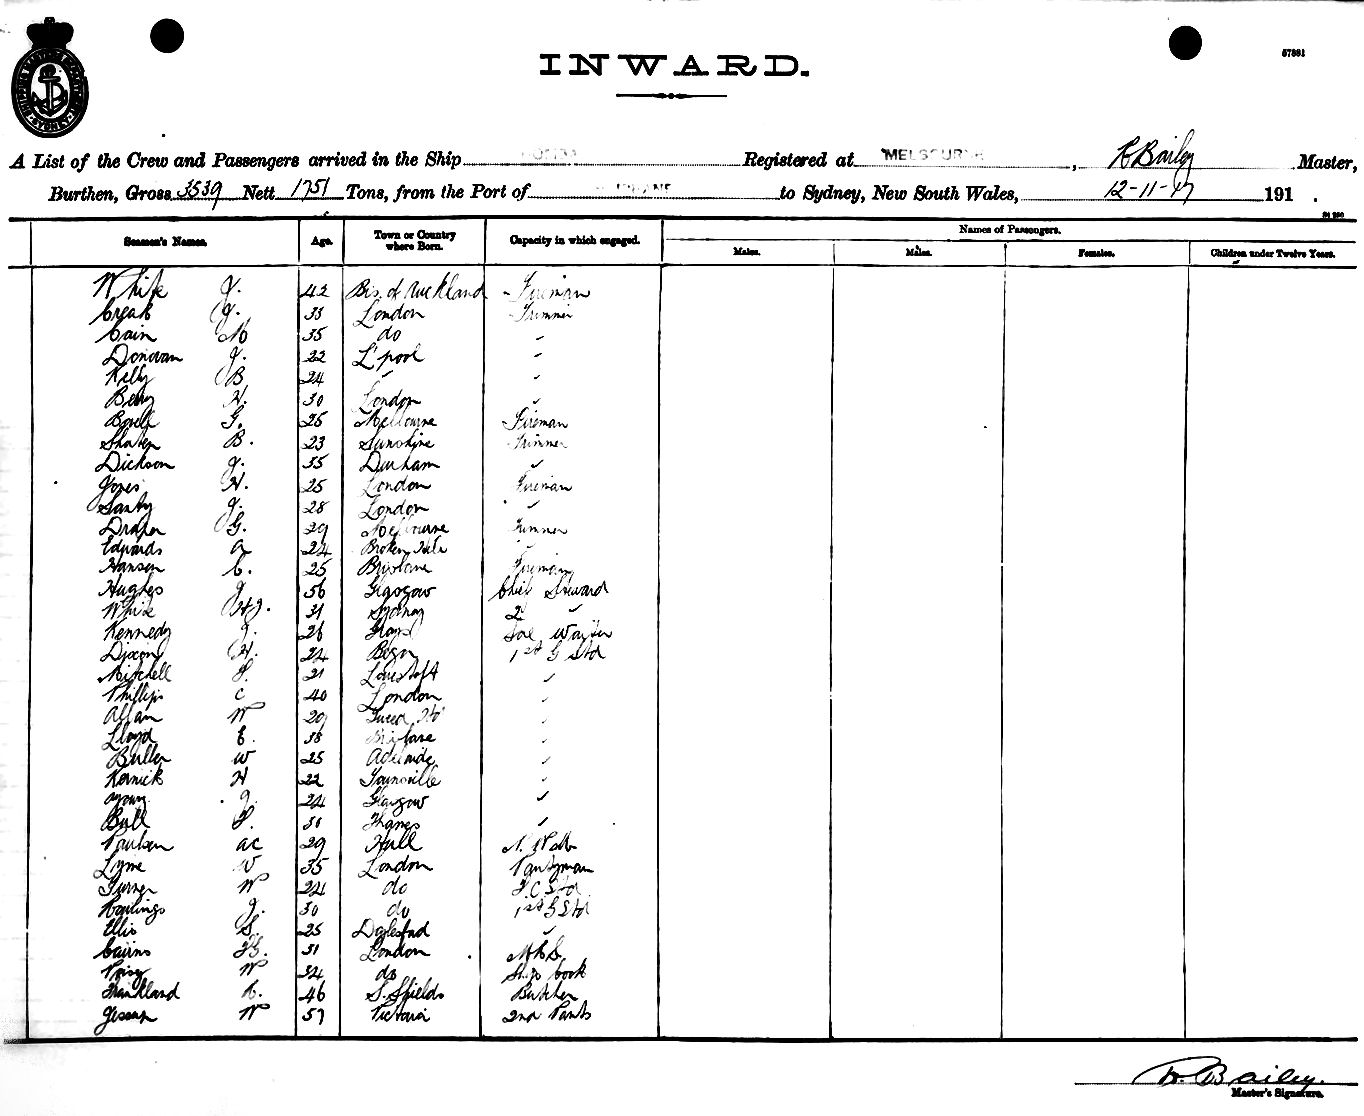 SHIPPING MASTER'S DEPARTMENT SYDNEY
INWARD.
57381
A List of the Crew and Passengers arrived in the Ship Registered at MELBOURNE, R Bailey Master,
Burthen, Gross 3539 Nett 1751 Tons, from the Port of to Sydney, New South Wales, 12-11-17 191 .
Seamen's Names. Age. Town or Country where Born. Capacity in which engaged. Names of Passengers.
Males. Males. Females. Children under Twelve Years.
White J. 42 Bis. of Auckland Fireman
Creak J. 33 London Trimmer
Cain M 35 do "
Donovan J. 22 L'pool "
Kelly B 24 " "
Berry H. 30 London "
Bovell G. 25 Melbourne Fireman
B. 23 Sunshine Trimmer
Dickson J. 35 Durham "
Jones H. 25 London Fireman
J. 28 London "
Draper G. 29 Melbourne Trimmer
Edwards A 24 Broken Hill "
Hansen C. 25 Brisbane Fireman
Hughes J 56 Glasgow Chief Steward
White 31 Sydney 2d "
Kennedy J. 26 Grays Sal waiter
Dixon H. 24 1st G Std
Mitchell F. 21 Lowestoft "
Phillips C 40 London "
Allan W 29 "
Lloyd E. 38 Brisbane "
Butler W 25 Adelaide "
Kernick H 22 Townsville "
Young J. 24 Glasgow "
Bull F. 31 Thames "
Paulsen AC 29 Hull
Lyme W 35 London Pantryman
Turner W 24 do F.C Std
Rawlings J. 30 do 1st G Std
Ellis S. 25 "
Cairns 31 London
W 34 do Ships Cook
Frankland R. 46 S. Shields Butcher
Jessup W 57 Victoria 2nd Pants
R. Bailey.
Master's Signature.